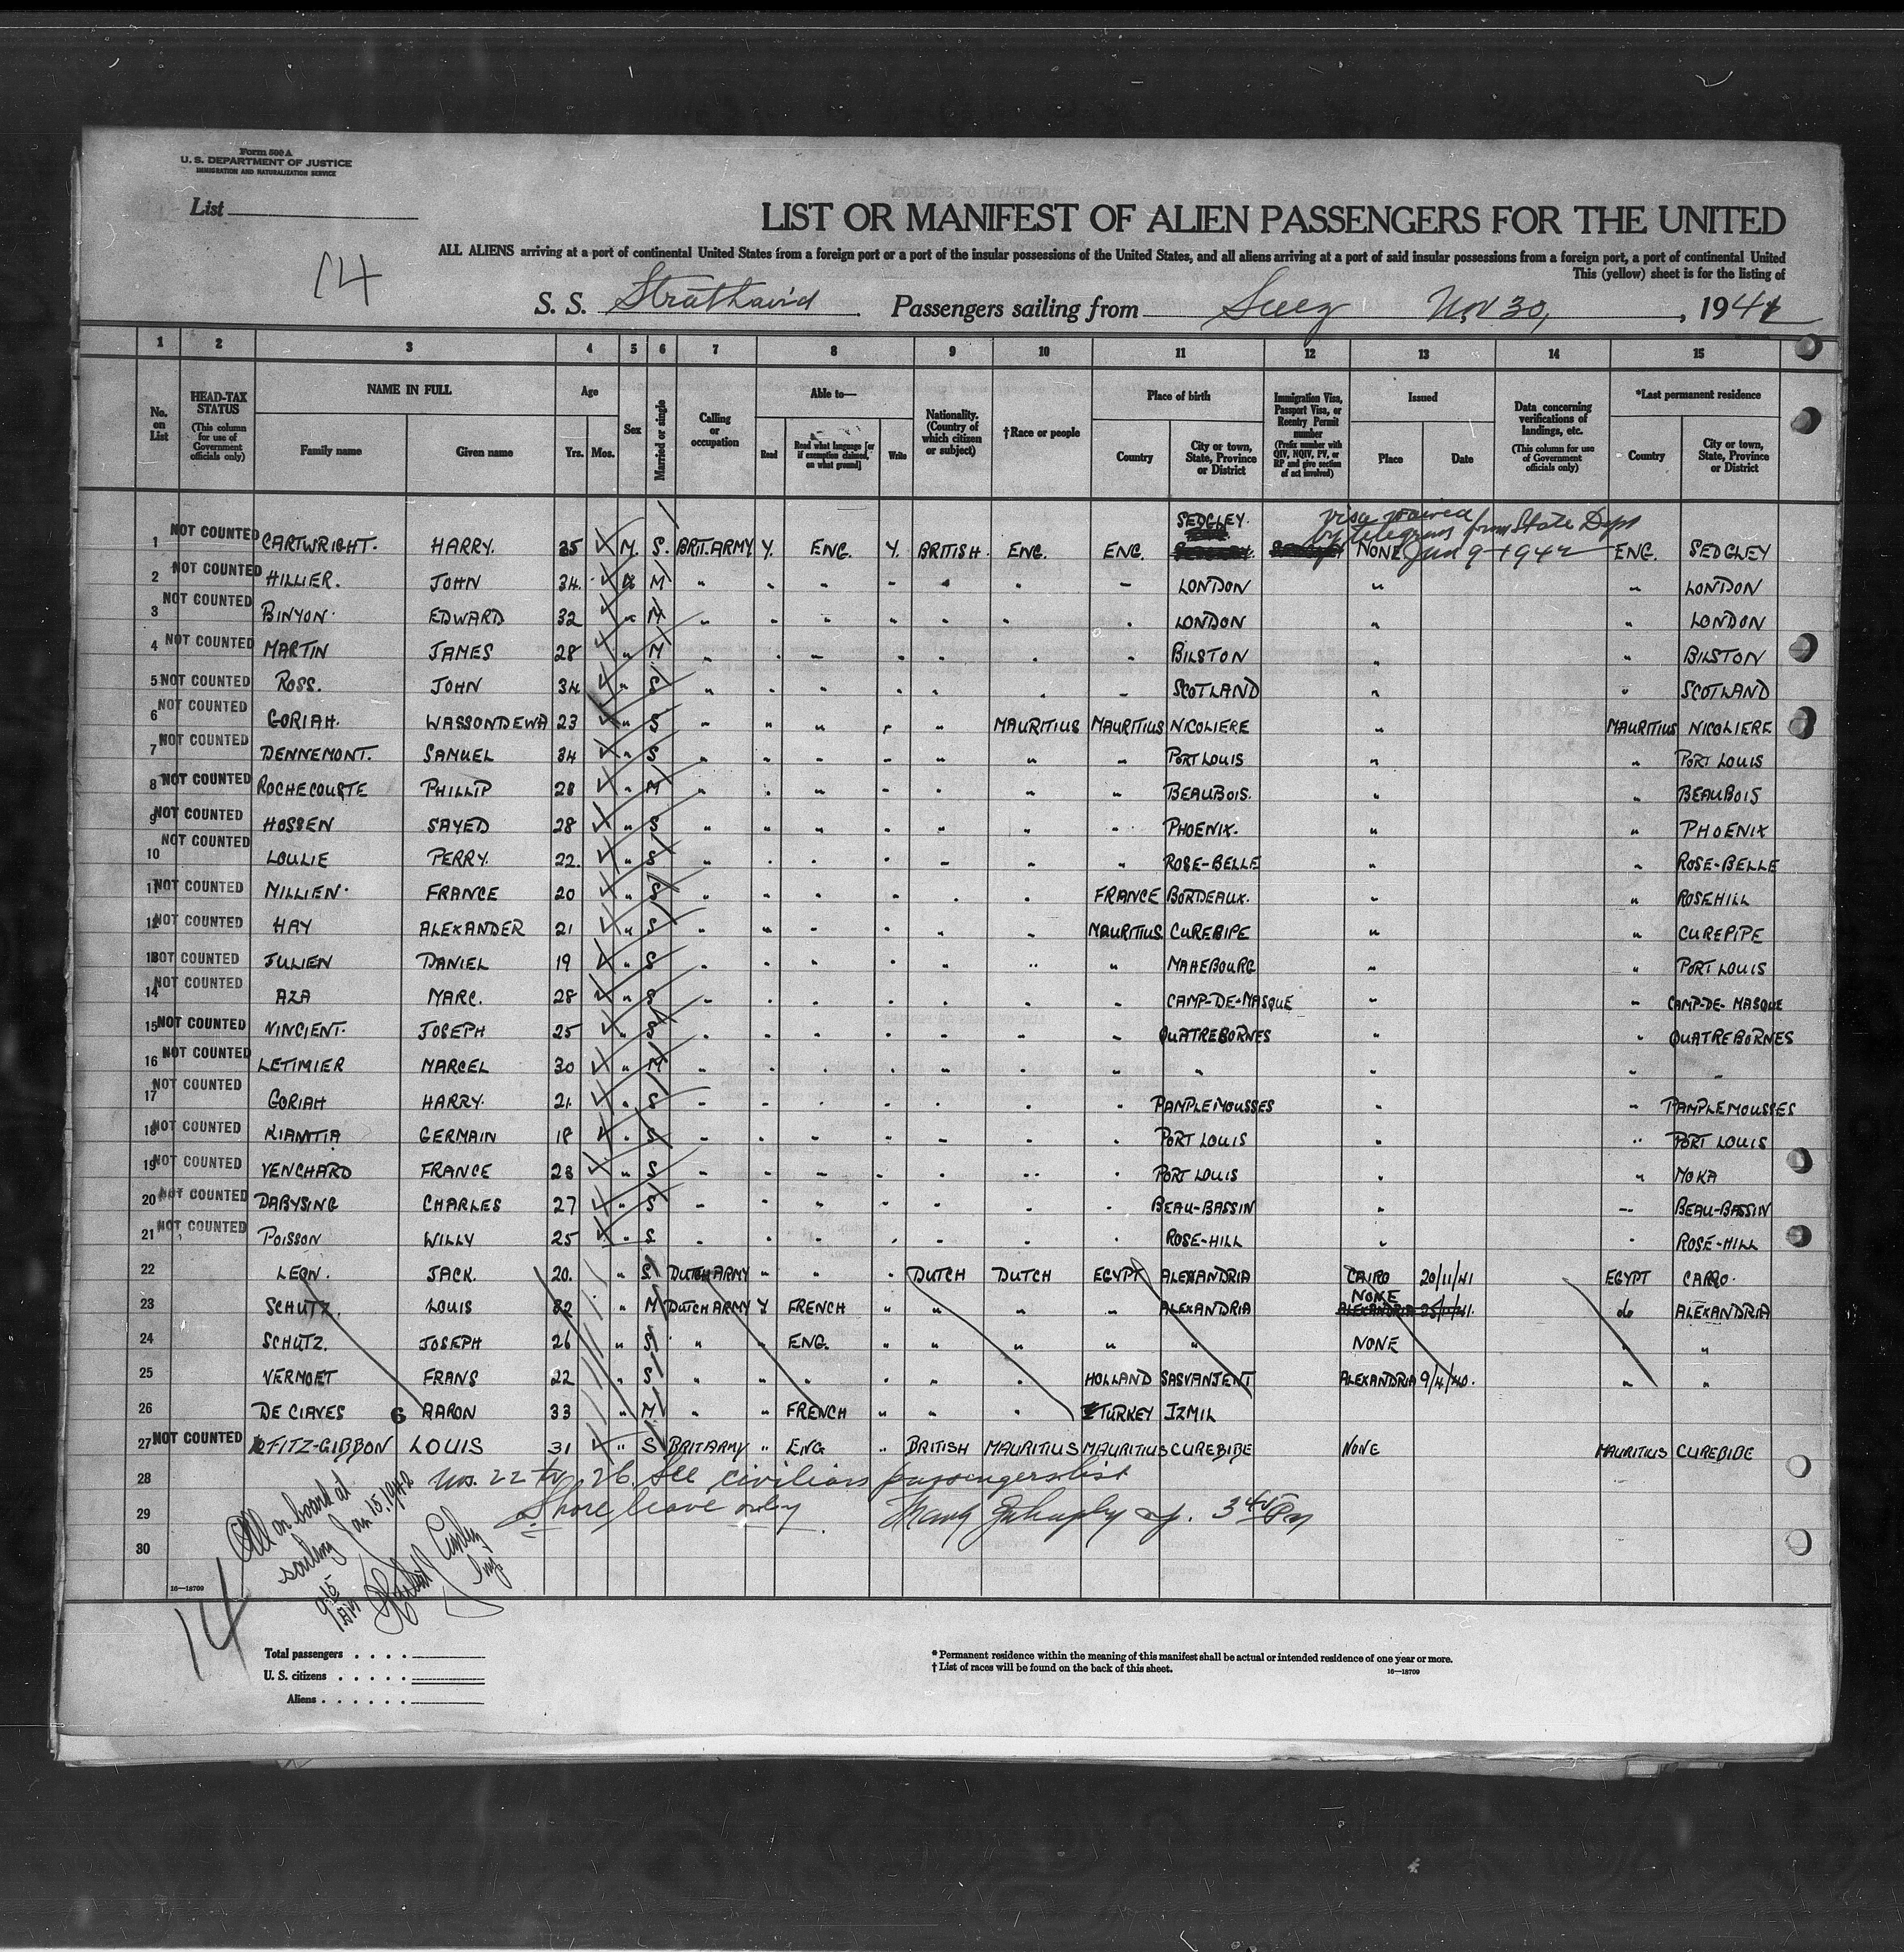 Form 500 A
U. S. DEPARTMENT OF JUSTICE
IMMIGRATION AND NATURALIZATION SERVICE
List
14
LIST OR MANIFEST OF ALIEN PASSENGERS FOR THE UNITED
ALL ALIENS arriving at a port of continental United States from a foreign port or a port of the insular possessions of the United States, and all aliens arriving at a port of said insular possessions from a foreign port, a port of continental United
This (yellow) sheet is for the listing of
S. S. Strathaird Passengers sailing from Suez Nov 30, , 1941
1 2 3 4 5 6 7 8 9 10 11 12 13 14 15
No. on List
HEAD-TAX STATUS (This column for use of Government officials only)
NAME IN FULL Family name Given name
Age Yrs. Mos.
Sex
Married or single
Calling or occupation
Able to— Read Read what language [or if exemption claimed, on what ground] Write
Nationality. (Country of which citizen or subject)
†Race or people
Place of birth Country City or town, State, Province or District
Immigration Visa, Passport Visa, or Reentry Permit number (Prefix number with QIV, NQIV, PV, or RP and give section of act involved)
Issued Place Date
Data concerning verifications of landings, etc. (This column for use of Government officials only)
*Last permanent residence Country City or town, State, Province or District
visa waived
by telegram from State Dept
Jan 9 1942
1 NOT COUNTED CARTWRIGHT. HARRY. 35 M. S. BRIT. ARMY Y. ENG. Y. BRITISH. ENG. ENG. SEDGLEY. NONE ENG. SEDGLEY
2 NOT COUNTED HILLIER. JOHN 34. M " " " " " " " LONDON " " LONDON
3 NOT COUNTED BINYON. EDWARD 32 " M " " " " " " " LONDON " " LONDON
4 NOT COUNTED MARTIN JAMES 28 " M " " " " " " " BILSTON " " BILSTON
5 NOT COUNTED ROSS. JOHN 34 " S " " " " " " " SCOTLAND " " SCOTLAND
6 NOT COUNTED GORIAH. WASSONDEWA 23 " S " " " " " MAURITIUS MAURITIUS NICOLIERE " MAURITIUS NICOLIERE
7 NOT COUNTED DENNEMONT. SAMUEL 34 " S " " " " " " " PORT LOUIS " " PORT LOUIS
8 NOT COUNTED ROCHECOUSTE PHILLIP 28 " M " " " " " " " BEAUBOIS. " " BEAUBOIS
9 NOT COUNTED HOSSEN SAYED 28 " S " " " " " " " PHOENIX. " " PHOENIX
10 NOT COUNTED LOULIE PERRY. 22. " S " " " " " " " ROSE-BELLE " ROSE-BELLE
11 NOT COUNTED MILLIEN. FRANCE 20 " S " " " " " " FRANCE BORDEAUX. " " ROSEHILL
12 NOT COUNTED HAY ALEXANDER 21 " S " " " " " " MAURITIUS CUREBIPE " " CUREPIPE
13 NOT COUNTED JULIEN DANIEL 19 " S " " " " " " " MAHEBOURG " " PORT LOUIS
14 NOT COUNTED AZA MARC. 28 " S " " " " " " " CAMP-DE-MASQUE " " CAMP-DE-MASQUE
15 NOT COUNTED VINCIENT. JOSEPH 25 " S " " " " " " " QUATREBORNES " " QUATREBORNES
16 NOT COUNTED LETIMIER MARCEL 30 " M " " " " " " " " " " "
17 NOT COUNTED GORIAH HARRY. 21. " S " " " " " " " PAMPLEMOUSSES " " PAMPLEMOUSSES
18 NOT COUNTED KIAMTIA GERMAIN 18 " S " " " " " " " PORT LOUIS " " PORT LOUIS
19 NOT COUNTED VENCHARD FRANCE 28 " S " " " " " " " PORT LOUIS " " MOKA
20 NOT COUNTED DABYSING CHARLES 27 " S " " " " " " " BEAU-BASSIN " " BEAU-BASSIN
21 NOT COUNTED POISSON WILLY 25 " S " " " " " " " ROSE-HILL " " ROSE-HILL
22 LEON. JACK. 20. " S DUTCH ARMY " " " DUTCH DUTCH EGYPT ALEXANDRIA CAIRO 20/11/41 EGYPT CAIRO.
23 SCHUTZ. LOUIS 32 " M DUTCH ARMY Y FRENCH " " " " ALEXANDRIA NONE ALEXANDRIA 25/11/41. do ALEXANDRIA
24 SCHUTZ. JOSEPH 26 " S " " ENG. " " " " " NONE " "
25 VERMOET FRANS 22 " S " " " " " " HOLLAND SASVANJENT ALEXANDRIA 9/4/40. " "
26 DE CIAVES 6 AARON 33 " M " " FRENCH " " " TURKEY IZMIL
27 NOT COUNTED FITZ-GIBBON LOUIS 31 " S BRIT ARMY " ENG " BRITISH MAURITIUS MAURITIUS CUREBIBE NONE MAURITIUS CUREBIBE
28 Nos. 22 to 26. See civilians passengers list
29 Shore leave only 3 45 Pm
30
All on board at
sailing Jan 15, 1942
9:15 AM
Insp.
14
16—18709
Total passengers
U. S. citizens
Aliens
* Permanent residence within the meaning of this manifest shall be actual or intended residence of one year or more.
† List of races will be found on the back of this sheet. 16—18709